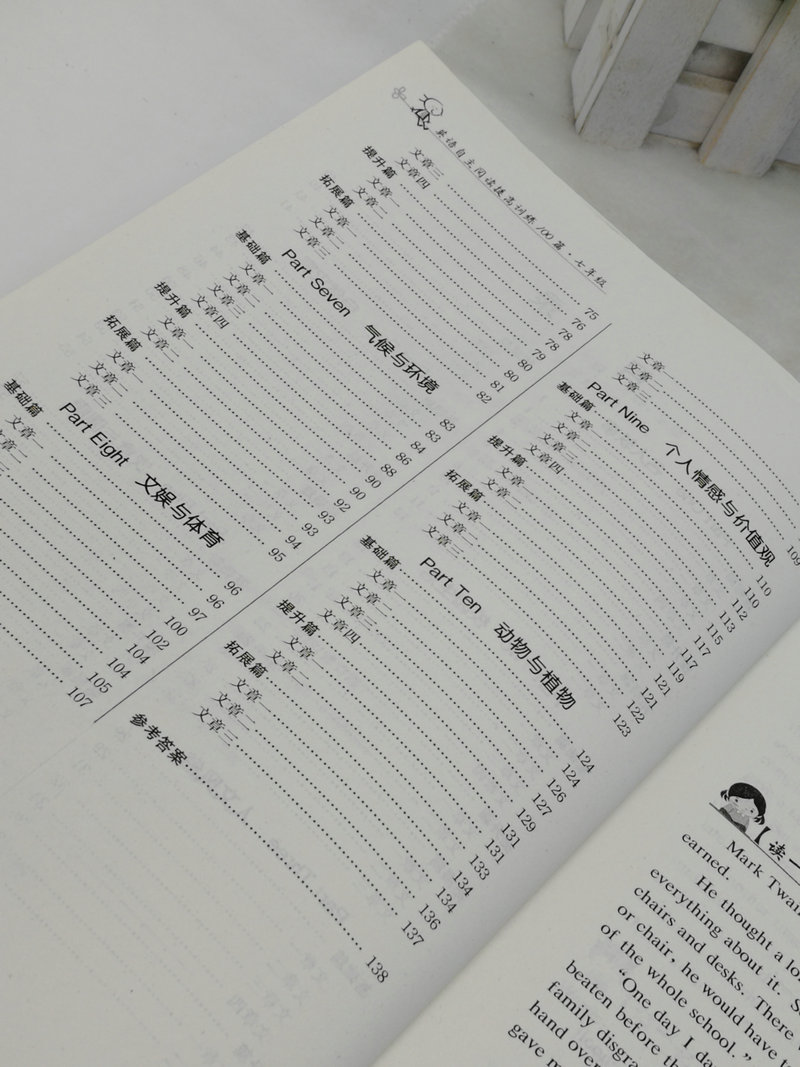 英语自主阅读提高训练100篇·七年级
文章三 75
文章四 76
提升篇 78
文章一 78
文章二 79
拓展篇 80
文章一 80
文章二 81
文章三 82
Part Seven 气候与环境
基础篇 83
文章一 83
文章二 84
文章三 86
文章四 88
提升篇 90
文章一 90
文章二 92
拓展篇 93
文章一 93
文章二 94
文章三 95
Part Eight 文娱与体育
基础篇 96
文章一 96
文章二 97
100
102
104
104
105
107
文章一
文章二
文章三 109
Part Nine 个人情感与价值观
基础篇 110
文章一 110
文章二 112
文章三 113
文章四 115
提升篇 117
文章一 117
文章二 119
拓展篇 121
文章一 121
文章二 122
文章三 123
Part Ten 动物与植物
基础篇 124
文章一 124
文章二 126
文章三 127
文章四 129
提升篇 131
文章一 131
文章二 133
拓展篇 134
文章一 134
文章二 136
文章三 137
参考答案 138
【读一
Mark Twain
earned.
He thought a lo
everything about it. S
chairs and desks. There
or chair, he would have t
of the whole school.”
“One day I
beaten before th
family disgra
hand over
gave m